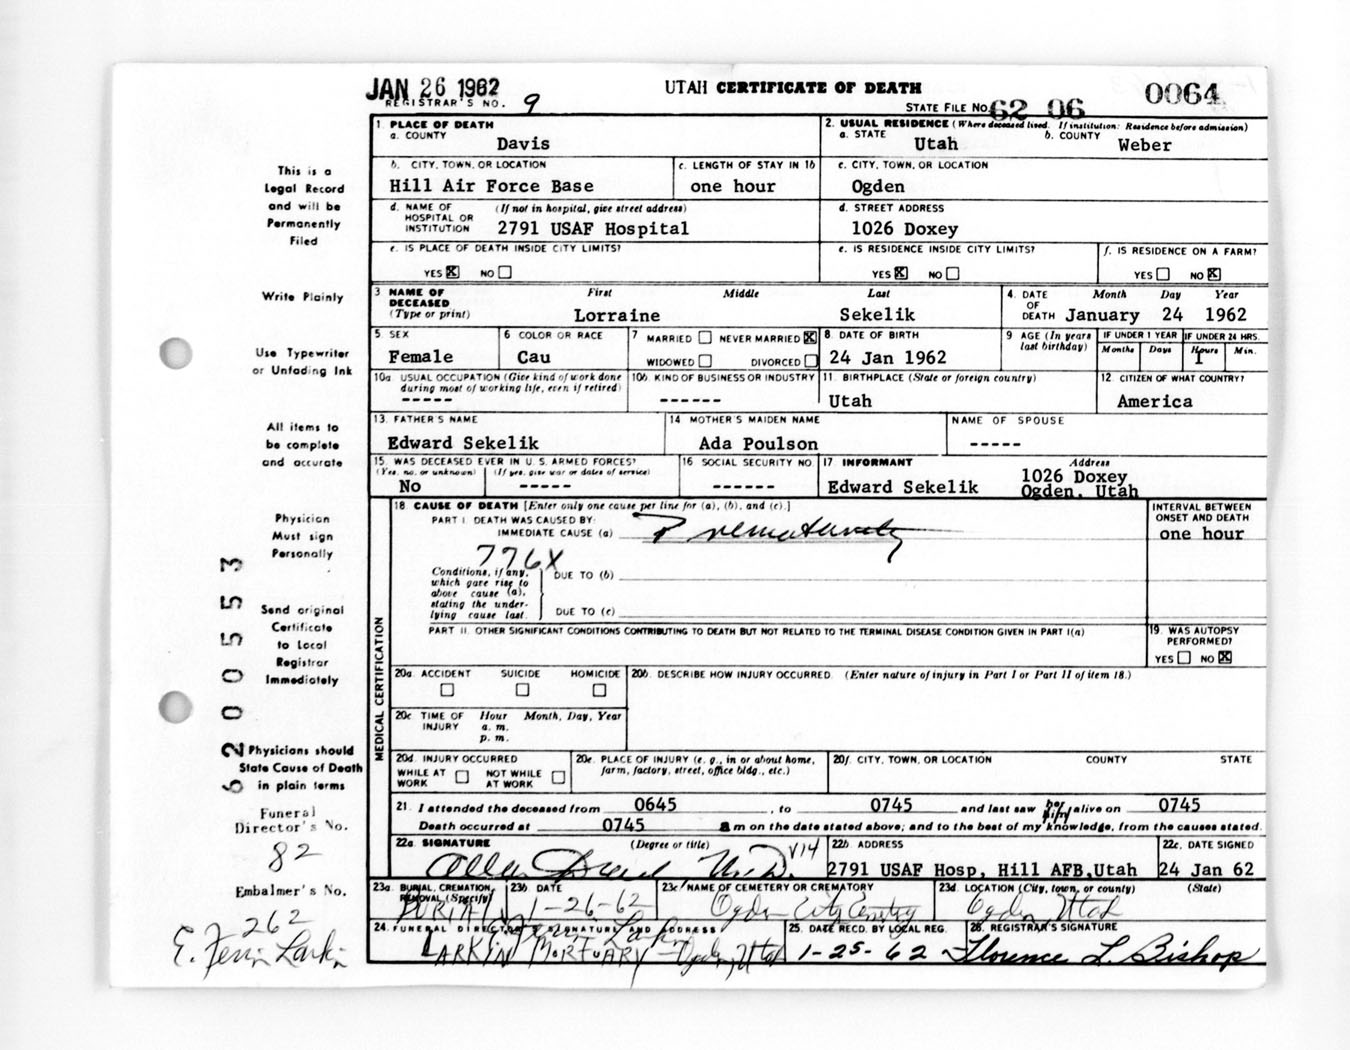 JAN 26 1962
UTAH CERTIFICATE OF DEATH
0064
REGISTRAR'S NO. 9
STATE FILE NO. 62 06
1. PLACE OF DEATH
a. COUNTY
Davis
2. USUAL RESIDENCE (Where deceased lived. If institution: Residence before admission)
a. STATE
Utah
b. COUNTY
Weber
b. CITY, TOWN, OR LOCATION
Hill Air Force Base
c. LENGTH OF STAY IN 1b
one hour
c. CITY, TOWN, OR LOCATION
Ogden
d. NAME OF HOSPITAL OR INSTITUTION
(If not in hospital, give street address)
2791 USAF Hospital
d. STREET ADDRESS
1026 Doxey
e. IS PLACE OF DEATH INSIDE CITY LIMITS?
YES X NO
e. IS RESIDENCE INSIDE CITY LIMITS?
YES X NO
f. IS RESIDENCE ON A FARM?
YES NO X
3 NAME OF DECEASED
(Type or print)
First Middle Last
Lorraine Sekelik
4. DATE OF DEATH
Month Day Year
January 24 1962
5. SEX
Female
6 COLOR OR RACE
Cau
7 MARRIED NEVER MARRIED X
WIDOWED DIVORCED
8 DATE OF BIRTH
24 Jan 1962
9 AGE (In years last birthday)
IF UNDER 1 YEAR
Months Days
IF UNDER 24 HRS.
Hours Min.
1
10a. USUAL OCCUPATION (Give kind of work done during most of working life, even if retired)
-----
10b. KIND OF BUSINESS OR INDUSTRY
------
11. BIRTHPLACE (State or foreign country)
Utah
12. CITIZEN OF WHAT COUNTRY?
America
13. FATHER'S NAME
Edward Sekelik
14 MOTHER'S MAIDEN NAME
Ada Poulson
NAME OF SPOUSE
-----
15. WAS DECEASED EVER IN U.S. ARMED FORCES?
(Yes, no, or unknown) (If yes, give war or dates of service)
No -----
16 SOCIAL SECURITY NO.
------
17 INFORMANT
Edward Sekelik
Address
1026 Doxey
Ogden, Utah
18. CAUSE OF DEATH [Enter only one cause per line for (a), (b), and (c).]
PART I. DEATH WAS CAUSED BY:
IMMEDIATE CAUSE (a) Prematurity
776X
Conditions, if any, which gave rise to above cause (a), stating the underlying cause last.
DUE TO (b)
DUE TO (c)
INTERVAL BETWEEN ONSET AND DEATH
one hour
PART II. OTHER SIGNIFICANT CONDITIONS CONTRIBUTING TO DEATH BUT NOT RELATED TO THE TERMINAL DISEASE CONDITION GIVEN IN PART I(a)
19. WAS AUTOPSY PERFORMED?
YES NO X
MEDICAL CERTIFICATION
20a. ACCIDENT SUICIDE HOMICIDE
20b. DESCRIBE HOW INJURY OCCURRED. (Enter nature of injury in Part I or Part II of item 18.)
20c TIME OF INJURY
Hour Month, Day, Year
a. m.
p. m.
20d. INJURY OCCURRED
WHILE AT WORK NOT WHILE AT WORK
20e. PLACE OF INJURY (e. g., in or about home, farm, factory, street, office bldg., etc.)
20f. CITY, TOWN, OR LOCATION COUNTY STATE
21. I attended the deceased from 0645, to 0745 and last saw her him alive on 0745
Death occurred at 0745 a m on the date stated above; and to the best of my knowledge, from the causes stated.
22a. SIGNATURE (Degree or title)
M.D. V14
22b. ADDRESS
2791 USAF Hosp, Hill AFB, Utah
22c. DATE SIGNED
24 Jan 62
23a. BURIAL, CREMATION, REMOVAL (Specify)
BURIAL
23b. DATE
1-26-62
23c. NAME OF CEMETERY OR CREMATORY
Ogden City Cemetry
23d. LOCATION (City, town, or county) (State)
Ogden, Utah
24. FUNERAL DIRECTOR'S SIGNATURE AND ADDRESS
E. Ferrin Larkin
LARKIN MORTUARY - Ogden, Utah
25. DATE RECD. BY LOCAL REG.
1-25-62
26. REGISTRAR'S SIGNATURE
Florence L. Bishop
This is a
Legal Record
and will be
Permanently
Filed
Write Plainly
Use Typewriter
or Unfading Ink
All items to
be complete
and accurate
Physician
Must sign
Personally
Send original
Certificate
to Local
Registrar
Immediately
Physicians should
State Cause of Death
in plain terms
Funeral
Director's No.
82
Embalmer's No.
262
E. Ferrin Larkin
6200553